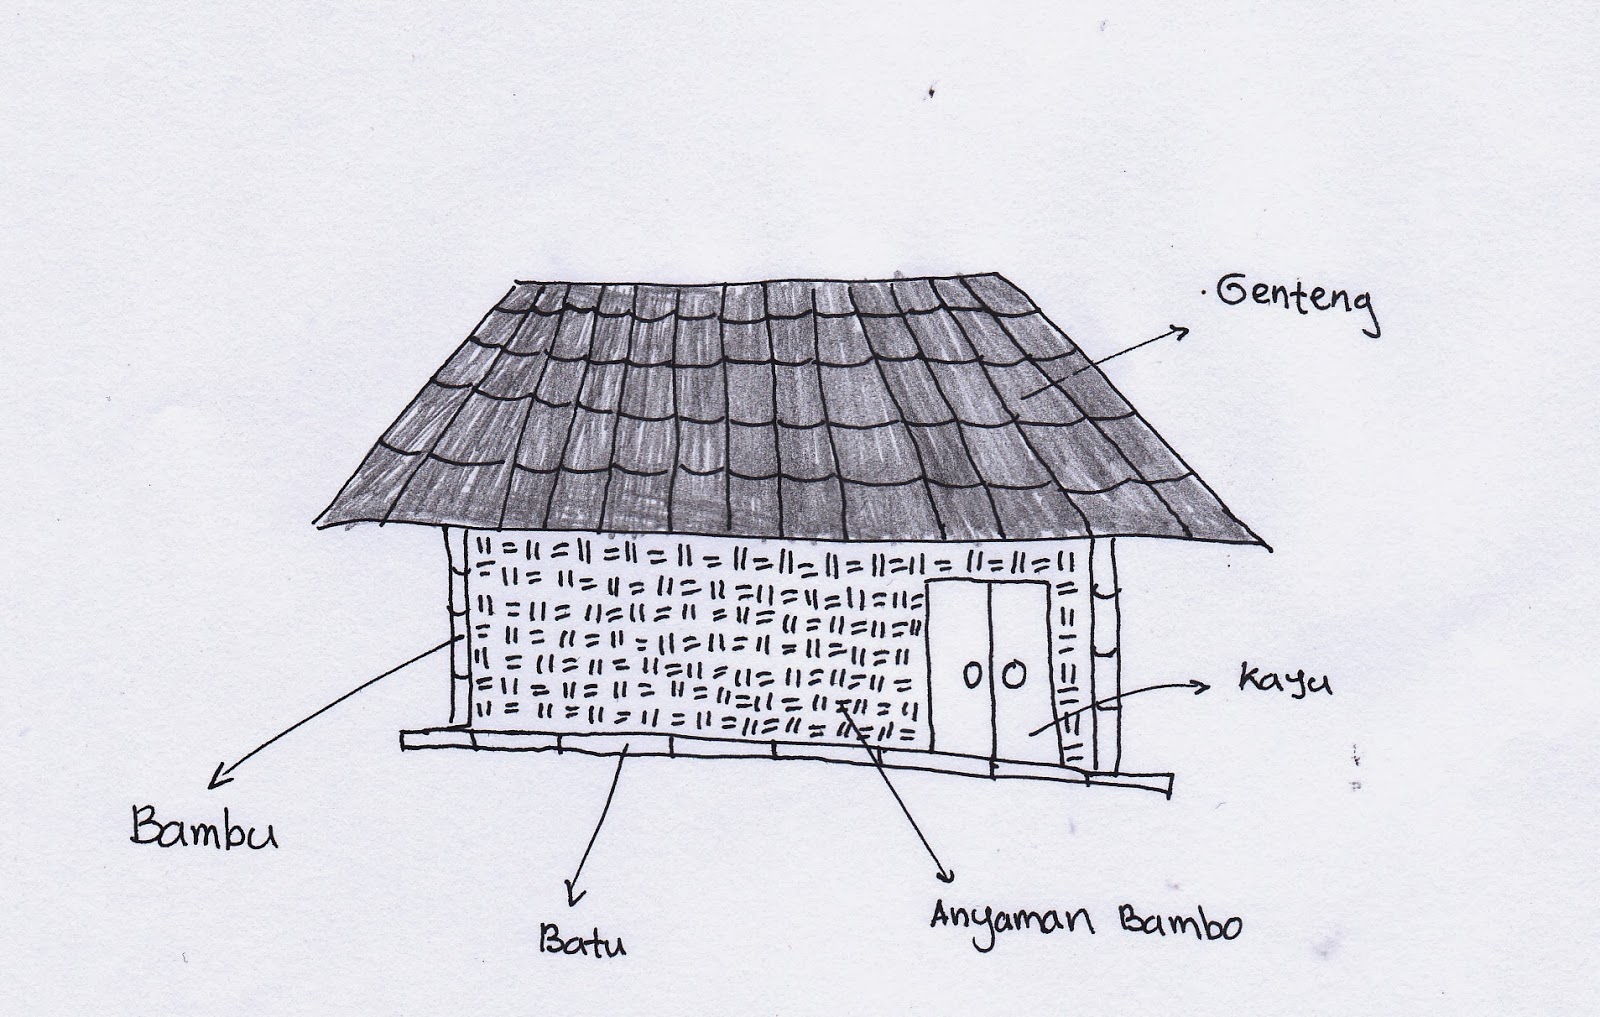 Genteng
Kayu
Bambu
Anyaman Bambo
Batu